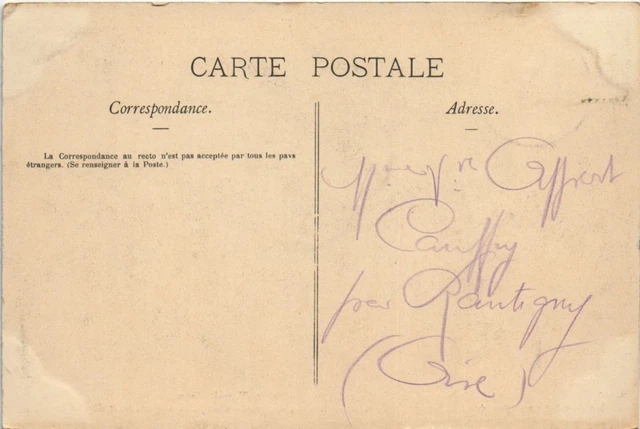 CARTE POSTALE
Correspondance.
Adresse.
La Correspondance au recto n'est pas acceptée par tous les pays
étrangers. (Se renseigner à la Poste.)
Cauffry
par Rantigny
(Oise)